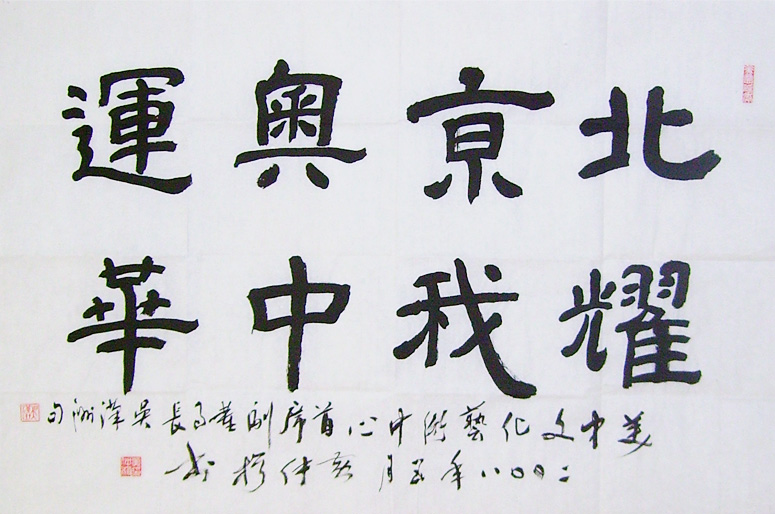 北京奧運
耀我中華
美中文化藝術中心首席副董事長吳漢湖句
二〇〇八年五月黃仲模書